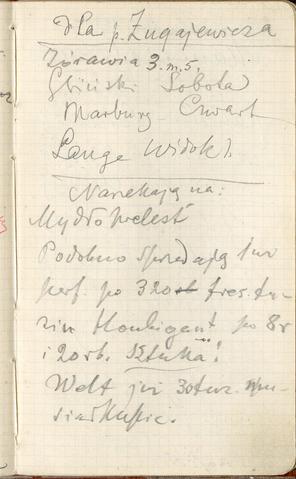 dla p. Zugajewicza
Żórawia 3. m. 5.
Gliński Sobota
Marburg Czwart
Lange Widok 7.
Narzekają na:
Mydło
Podobno sprzedają
perf. po 320 rb frcs. tu-
zin Houbigant po 8r
i 20rb. sztuka!
Welt już 30 tuz.